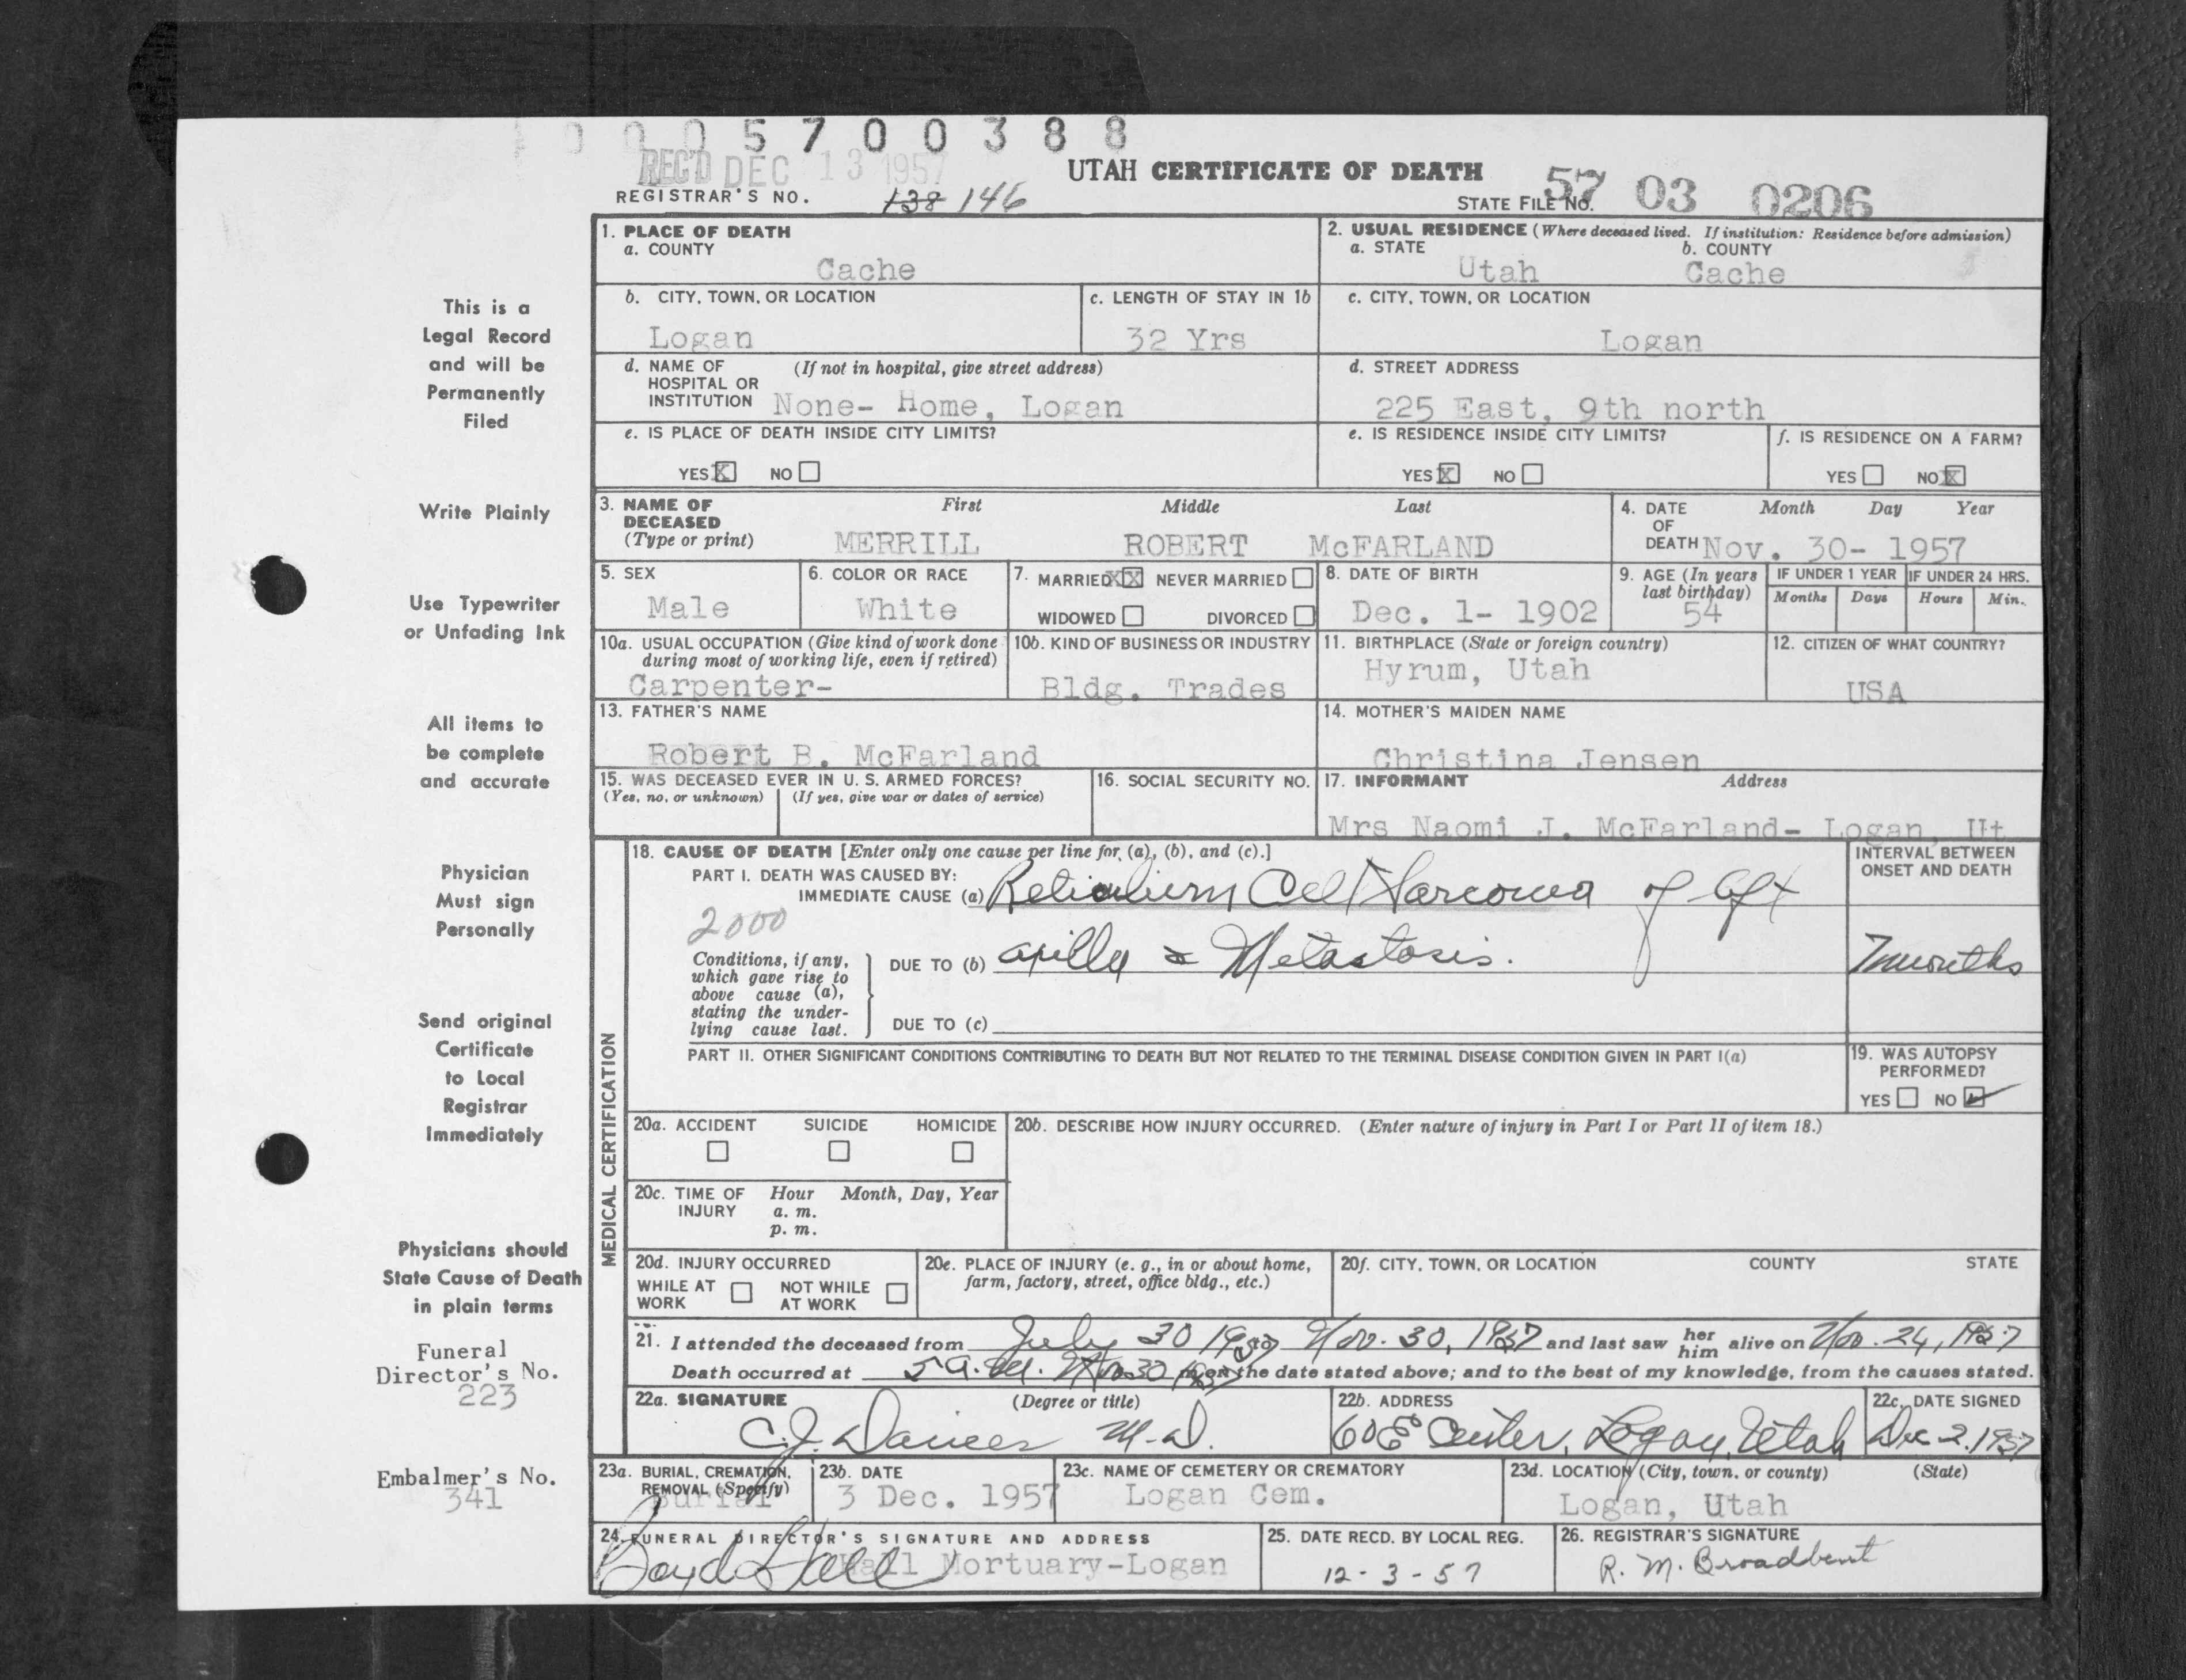 0005700388
REC'D DEC 13 1957
UTAH CERTIFICATE OF DEATH
REGISTRAR'S NO. 138 146
STATE FILE NO. 57 03 0206
1. PLACE OF DEATH
a. COUNTY
Cache
2. USUAL RESIDENCE (Where deceased lived. If institution: Residence before admission)
a. STATE b. COUNTY
Utah Cache
b. CITY, TOWN, OR LOCATION
Logan
c. LENGTH OF STAY IN 1b
32 Yrs
c. CITY, TOWN, OR LOCATION
Logan
d. NAME OF (If not in hospital, give street address)
HOSPITAL OR
INSTITUTION None- Home, Logan
d. STREET ADDRESS
225 East, 9th north
e. IS PLACE OF DEATH INSIDE CITY LIMITS?
YES X NO
e. IS RESIDENCE INSIDE CITY LIMITS?
YES X NO
f. IS RESIDENCE ON A FARM?
YES NO X
3. NAME OF First Middle Last
DECEASED
(Type or print) MERRILL ROBERT McFARLAND
4. DATE Month Day Year
OF
DEATH Nov. 30- 1957
5. SEX
Male
6. COLOR OR RACE
White
7. MARRIED XX NEVER MARRIED
WIDOWED DIVORCED
8. DATE OF BIRTH
Dec. 1- 1902
9. AGE (In years
last birthday)
54
IF UNDER 1 YEAR IF UNDER 24 HRS.
Months Days Hours Min.
10a. USUAL OCCUPATION (Give kind of work done
during most of working life, even if retired)
Carpenter-
10b. KIND OF BUSINESS OR INDUSTRY
Bldg. Trades
11. BIRTHPLACE (State or foreign country)
Hyrum, Utah
12. CITIZEN OF WHAT COUNTRY?
USA
13. FATHER'S NAME
Robert B. McFarland
14. MOTHER'S MAIDEN NAME
Christina Jensen
15. WAS DECEASED EVER IN U. S. ARMED FORCES?
(Yes, no, or unknown) (If yes, give war or dates of service)
16. SOCIAL SECURITY NO.
17. INFORMANT Address
Mrs Naomi J. McFarland- Logan, Ut
MEDICAL CERTIFICATION
18. CAUSE OF DEATH [Enter only one cause per line for (a), (b), and (c).]
PART I. DEATH WAS CAUSED BY:
IMMEDIATE CAUSE (a) Reticulum Cell Sarcoma of Left
2000
Conditions, if any,
which gave rise to
above cause (a),
stating the under-
lying cause last.
DUE TO (b) axilla & Metastasis.
DUE TO (c)
INTERVAL BETWEEN
ONSET AND DEATH
7 months
PART II. OTHER SIGNIFICANT CONDITIONS CONTRIBUTING TO DEATH BUT NOT RELATED TO THE TERMINAL DISEASE CONDITION GIVEN IN PART I(a)
19. WAS AUTOPSY
PERFORMED?
YES NO ✓
20a. ACCIDENT SUICIDE HOMICIDE
20b. DESCRIBE HOW INJURY OCCURRED. (Enter nature of injury in Part I or Part II of item 18.)
20c. TIME OF Hour Month, Day, Year
INJURY a. m.
p. m.
20d. INJURY OCCURRED
WHILE AT NOT WHILE
WORK AT WORK
20e. PLACE OF INJURY (e. g., in or about home,
farm, factory, street, office bldg., etc.)
20f. CITY, TOWN, OR LOCATION COUNTY STATE
21. I attended the deceased from July 30 1957 to Nov. 30, 1957 and last saw her him alive on Nov. 24, 1957
Death occurred at 5 A.M. Nov 30 1957 m. on the date stated above; and to the best of my knowledge, from the causes stated.
22a. SIGNATURE (Degree or title)
C. J. Daines M.D.
22b. ADDRESS
60 E Center, Logan, Utah
22c. DATE SIGNED
Dec 2, 1957
23a. BURIAL, CREMATION,
REMOVAL (Specify)
Burial
23b. DATE
3 Dec. 1957
23c. NAME OF CEMETERY OR CREMATORY
Logan Cem.
23d. LOCATION (City, town, or county) (State)
Logan, Utah
24. FUNERAL DIRECTOR'S SIGNATURE AND ADDRESS
Boyd Hall Hall Mortuary-Logan
25. DATE RECD. BY LOCAL REG.
12-3-57
26. REGISTRAR'S SIGNATURE
R. M. Broadbent
This is a
Legal Record
and will be
Permanently
Filed
Write Plainly
Use Typewriter
or Unfading Ink
All items to
be complete
and accurate
Physician
Must sign
Personally
Send original
Certificate
to Local
Registrar
Immediately
Physicians should
State Cause of Death
in plain terms
Funeral
Director's No.
223
Embalmer's No.
341